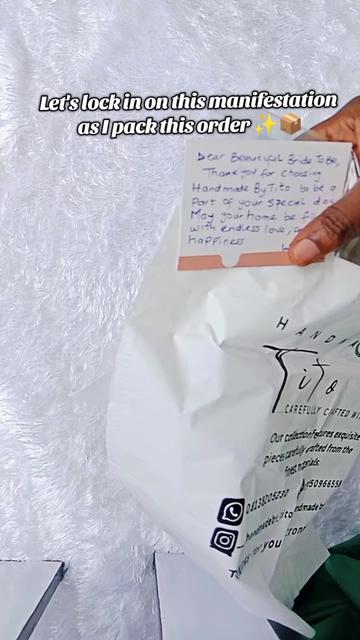 Let's lock in on this manifestation
as I pack this order ✨📦
Dear Beautiful Bride To Be,
Thank you for choosing
Handmade By Tito to be a
Part of your special day
May your home be
with endless love,
happiness
HANDM
Tito
...CAREFULLY CRAFTED WI
Our collection features exquisite
pieces carefully crafted from the
finest materials.
you